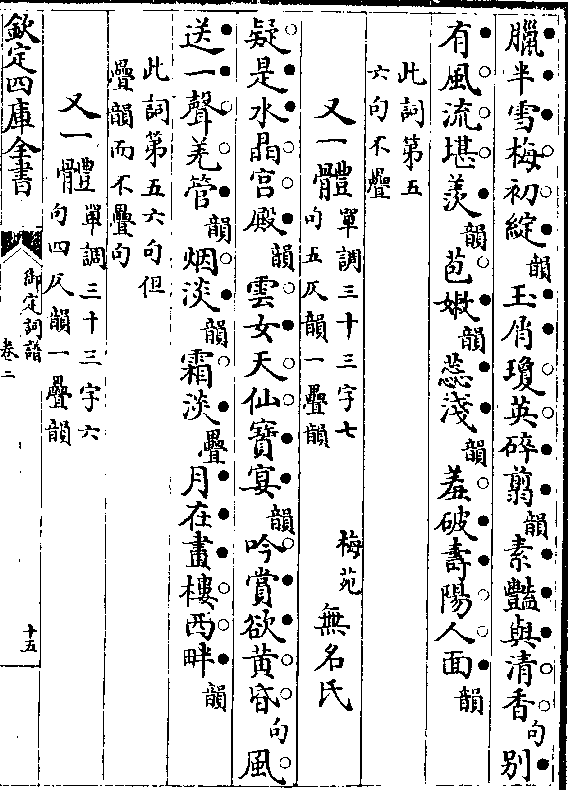 臘半雪梅初綻韻玉屑瓊英碎翦韻素豔與清香句别
有風流堪羡韻苞嫩韻蕊淺韻羞破壽陽人面韻
此詞第五
六句不疊
又一體單調三十三字七
句五仄韻一疊韻
梅苑無名氏
疑是水晶宫殿韻雲女天仙寶宴韻吟賞欲黄昏句風
送一聲羌管韻烟淡韻霜淡疊月在畫樓西畔韻
此詞第五六句但
疊韻而不疊句
又一體單調三十三字六
句四仄韻一疊韻
欽定四庫全書
御定詞譜
卷二
十五